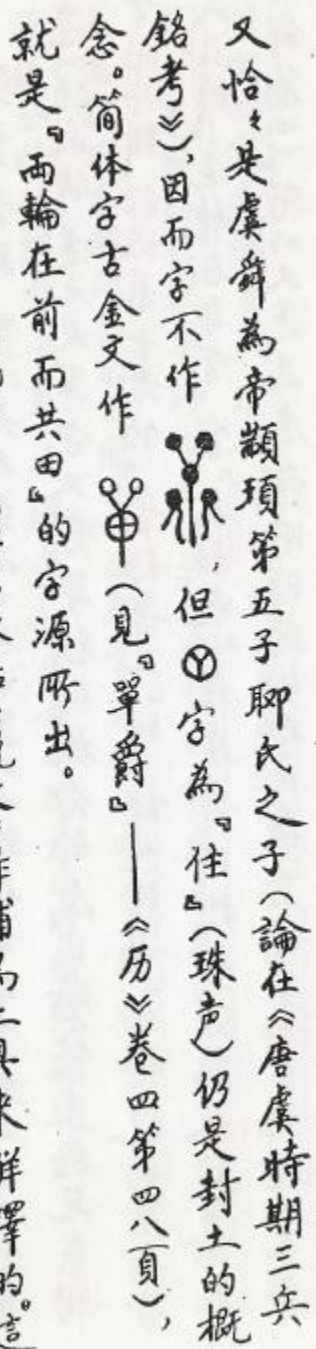 又恰々是虞舜為帝顓頊第五子聊氏之子（論在《唐虞時期三兵
銘考》），因而字不作，但字為『住』（珠声）仍是封土的概
念。简体字古金文作（見『單爵』——《历》卷四第四八頁），
就是『両輪在前而共田』的字源所出。